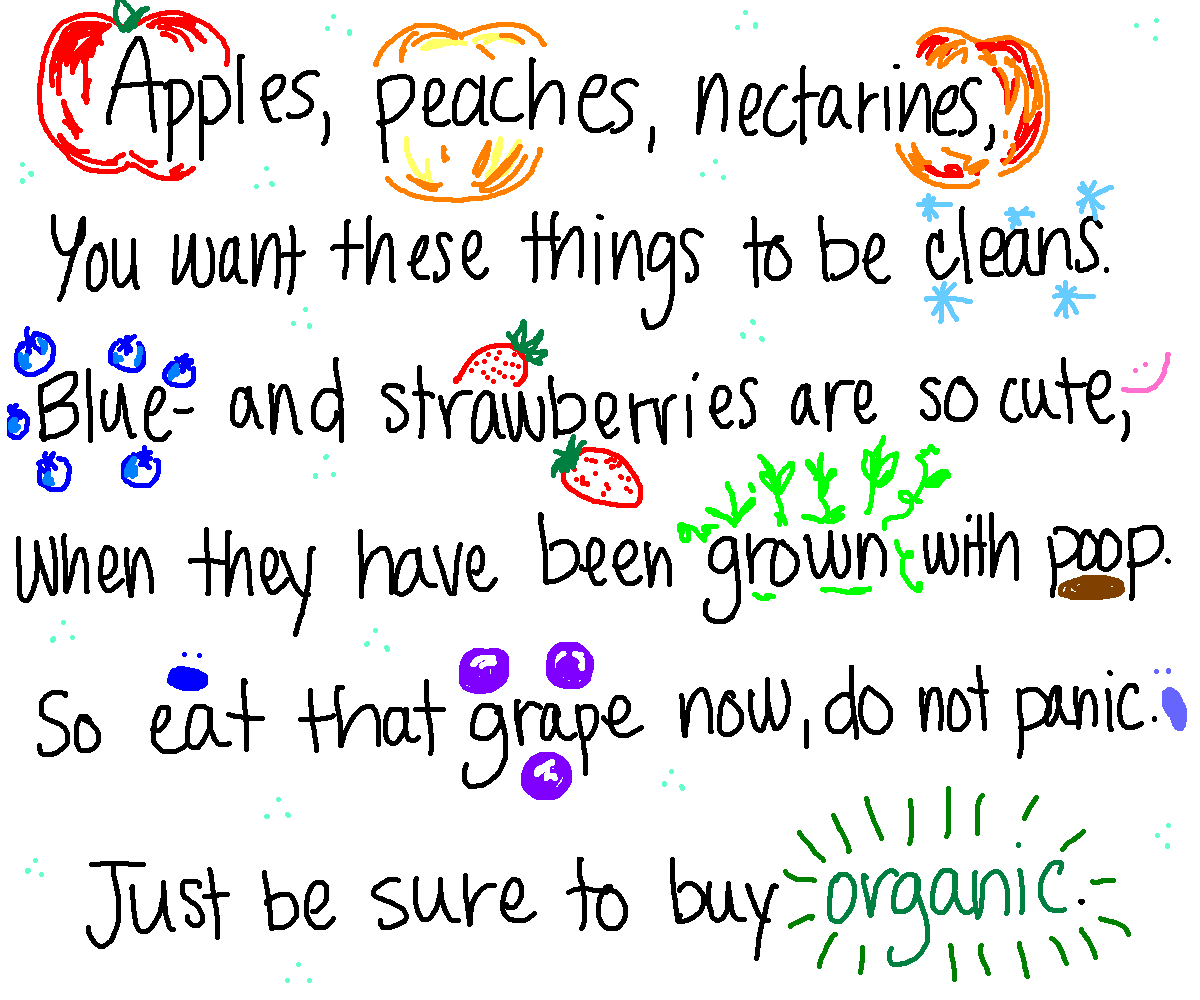 Apples, peaches, nectarines,
You want these things to be cleans.
Blue- and strawberries are so cute,
When they have been grown with poop.
So eat that grape now, do not panic.
Just be sure to buy organic.